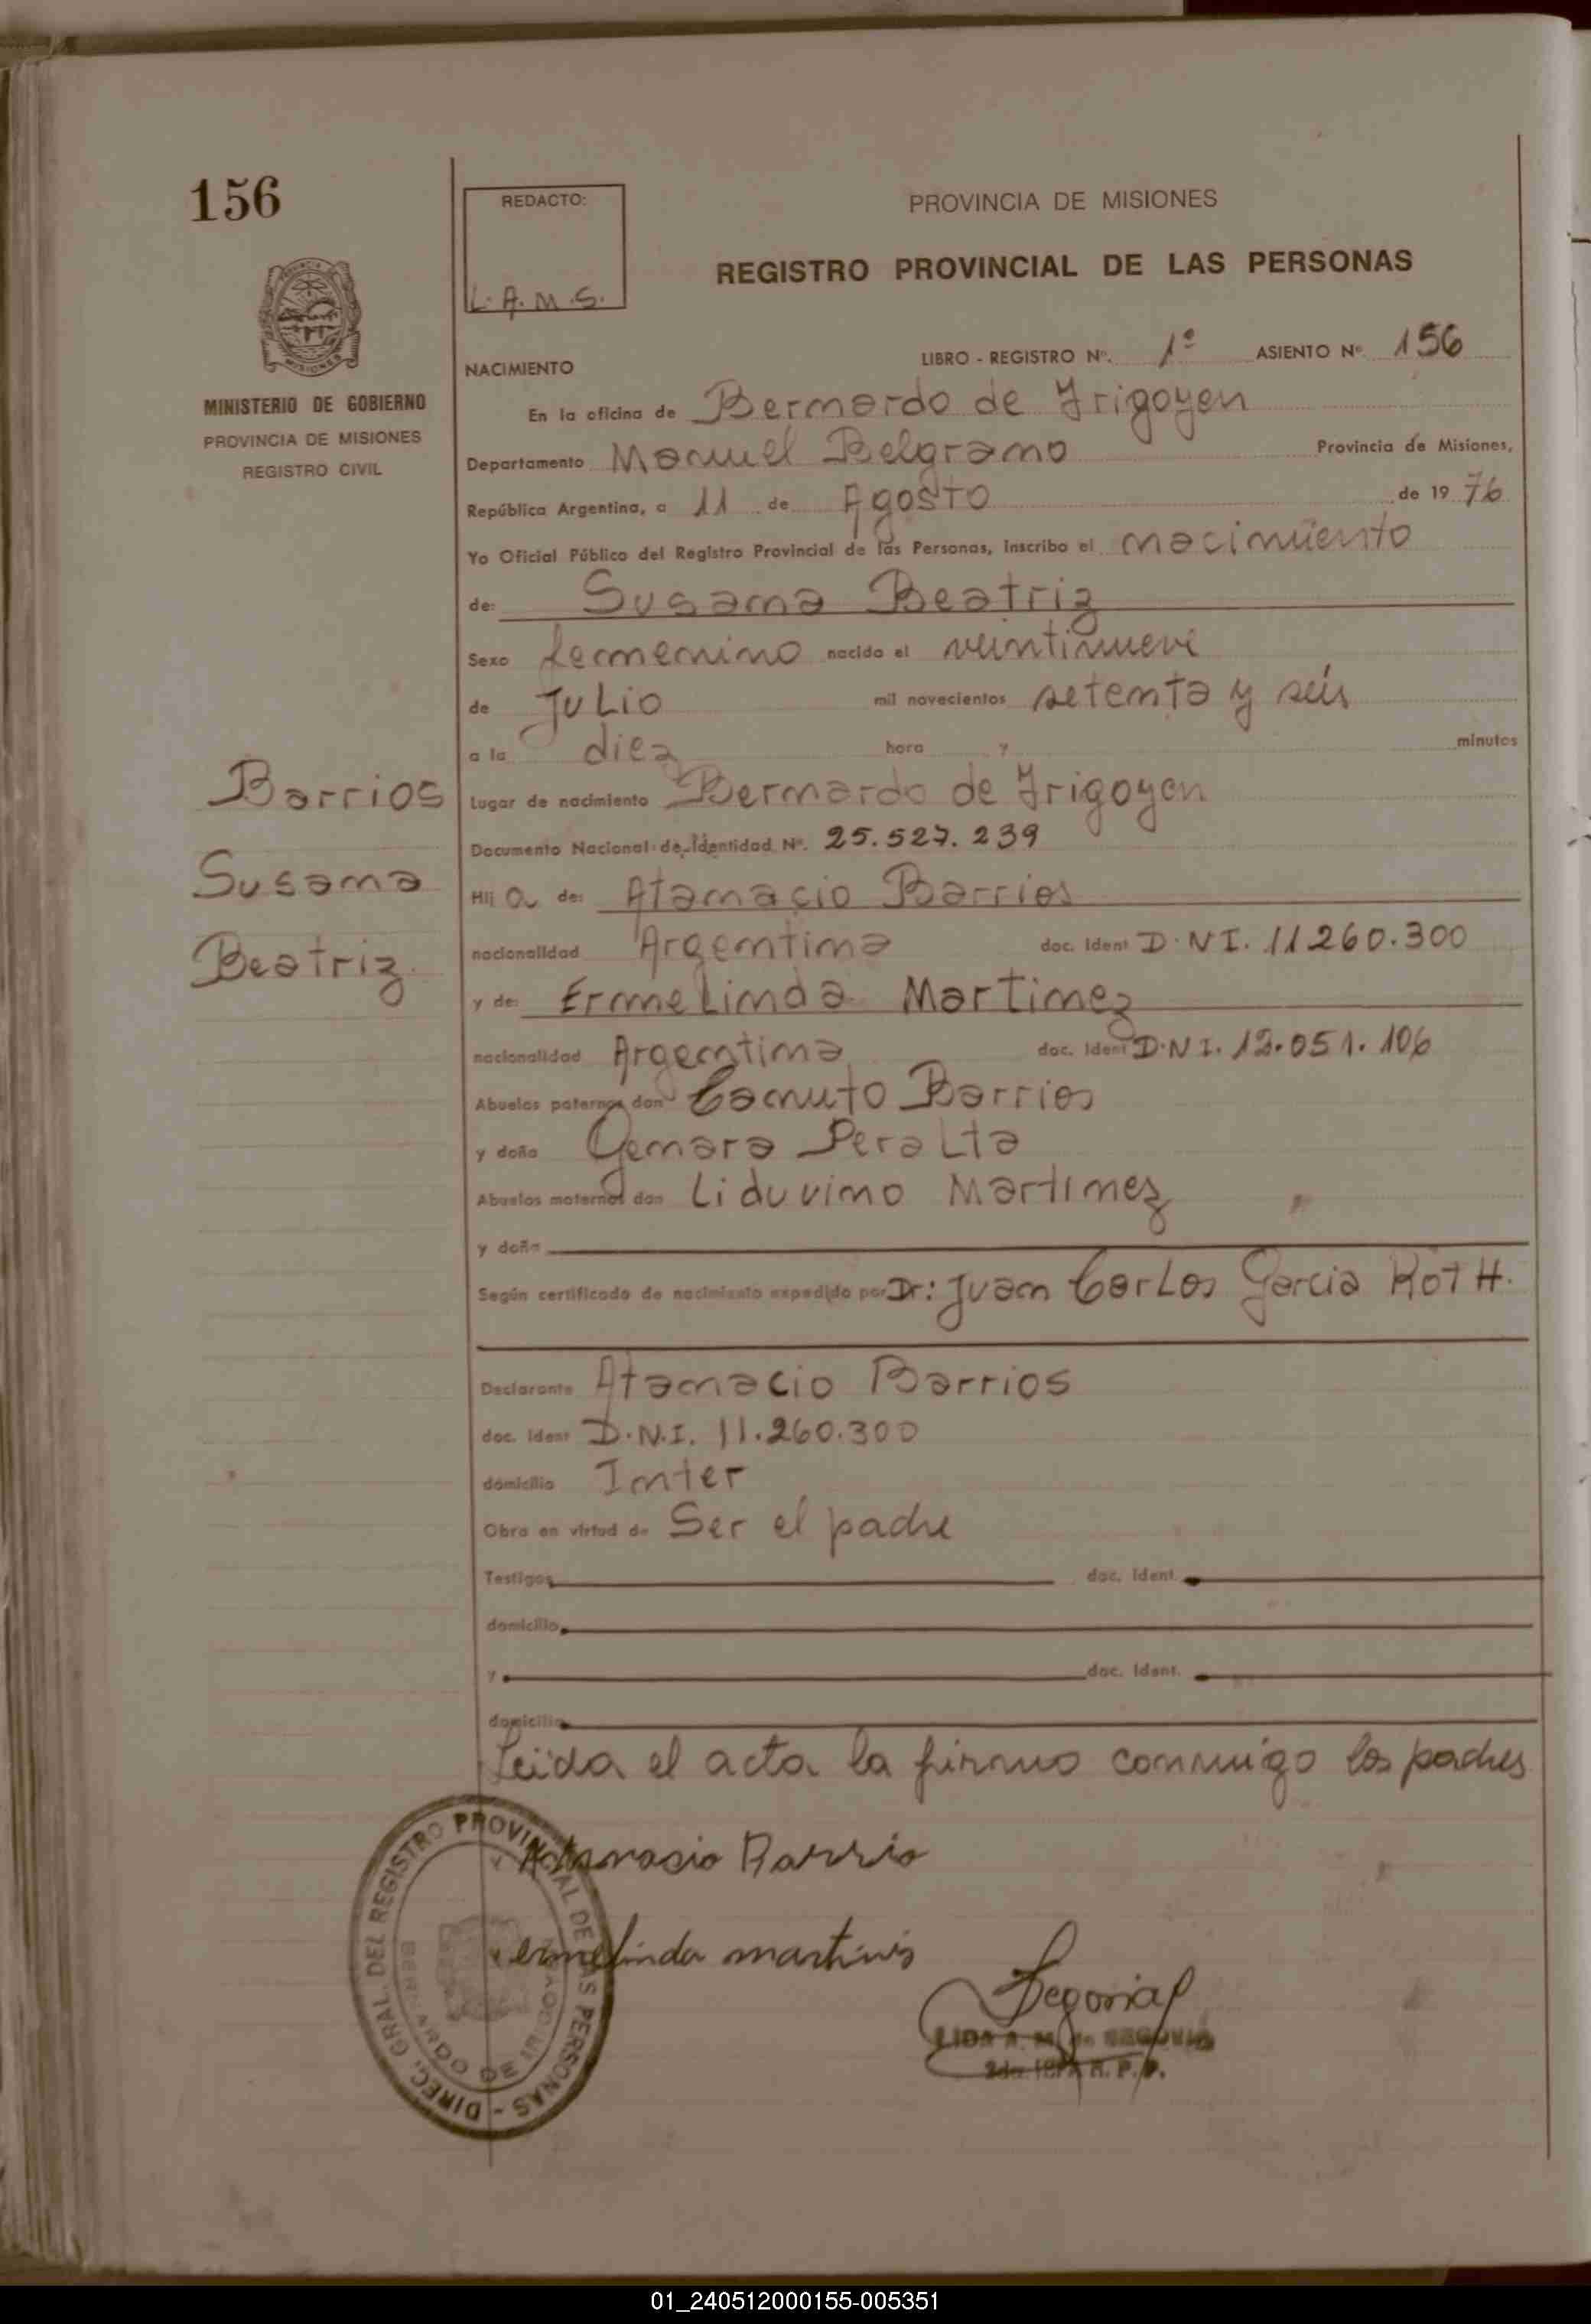 156
REDACTO:
L. A. M. S.
PROVINCIA DE MISIONES
REGISTRO PROVINCIAL DE LAS PERSONAS
MINISTERIO DE GOBIERNO
PROVINCIA DE MISIONES
REGISTRO CIVIL
NACIMIENTO
LIBRO - REGISTRO Nº. 1º ASIENTO Nº 156
En la oficina de Bernardo de Irigoyen
Departamento Manuel Belgrano Provincia de Misiones,
República Argentina, a 11 de Agosto de 19 76
Yo Oficial Público del Registro Provincial de las Personas, inscribo el nacimiento
de: Susana Beatriz
Sexo femenino nacido el veintinueve
de Julio mil novecientos setenta y seis
a la diez hora y minutos
Barrios
Susana
Beatriz
Lugar de nacimiento Bernardo de Irigoyen
Documento Nacional de Identidad Nº. 25.527.239
Hij a de: Atanacio Barrios
nacionalidad Argentina doc. Ident D.N.I. 11260.300
y de: Ermelinda Martinez
nacionalidad Argentina doc. Ident D.N.I. 12.051.106
Abuelos paternos don Canuto Barrios
y doña Genara Peralta
Abuelos maternos don Liduvino Martinez
y doña
Según certificado de nacimiento expedido por Dr: Juan Carlos Garcia ROTH.
Declarante Atanacio Barrios
doc. Ident D.N.I. 11.260.300
domicilio Inter
Obra en virtud de Ser el padre
Testigos doc. Ident.
domicilio
y doc. Ident.
domicilio
Leida el acta la firman conmigo los padres
Atanasio Barrio
ermelinda martinis
Segovia
LIDA A. M. de SEGOVIA
2da. JEFA R. P. P.
DIREC. GRAL. DEL REGISTRO PROVINCIAL DE LAS PERSONAS -
01_240512000155-005351